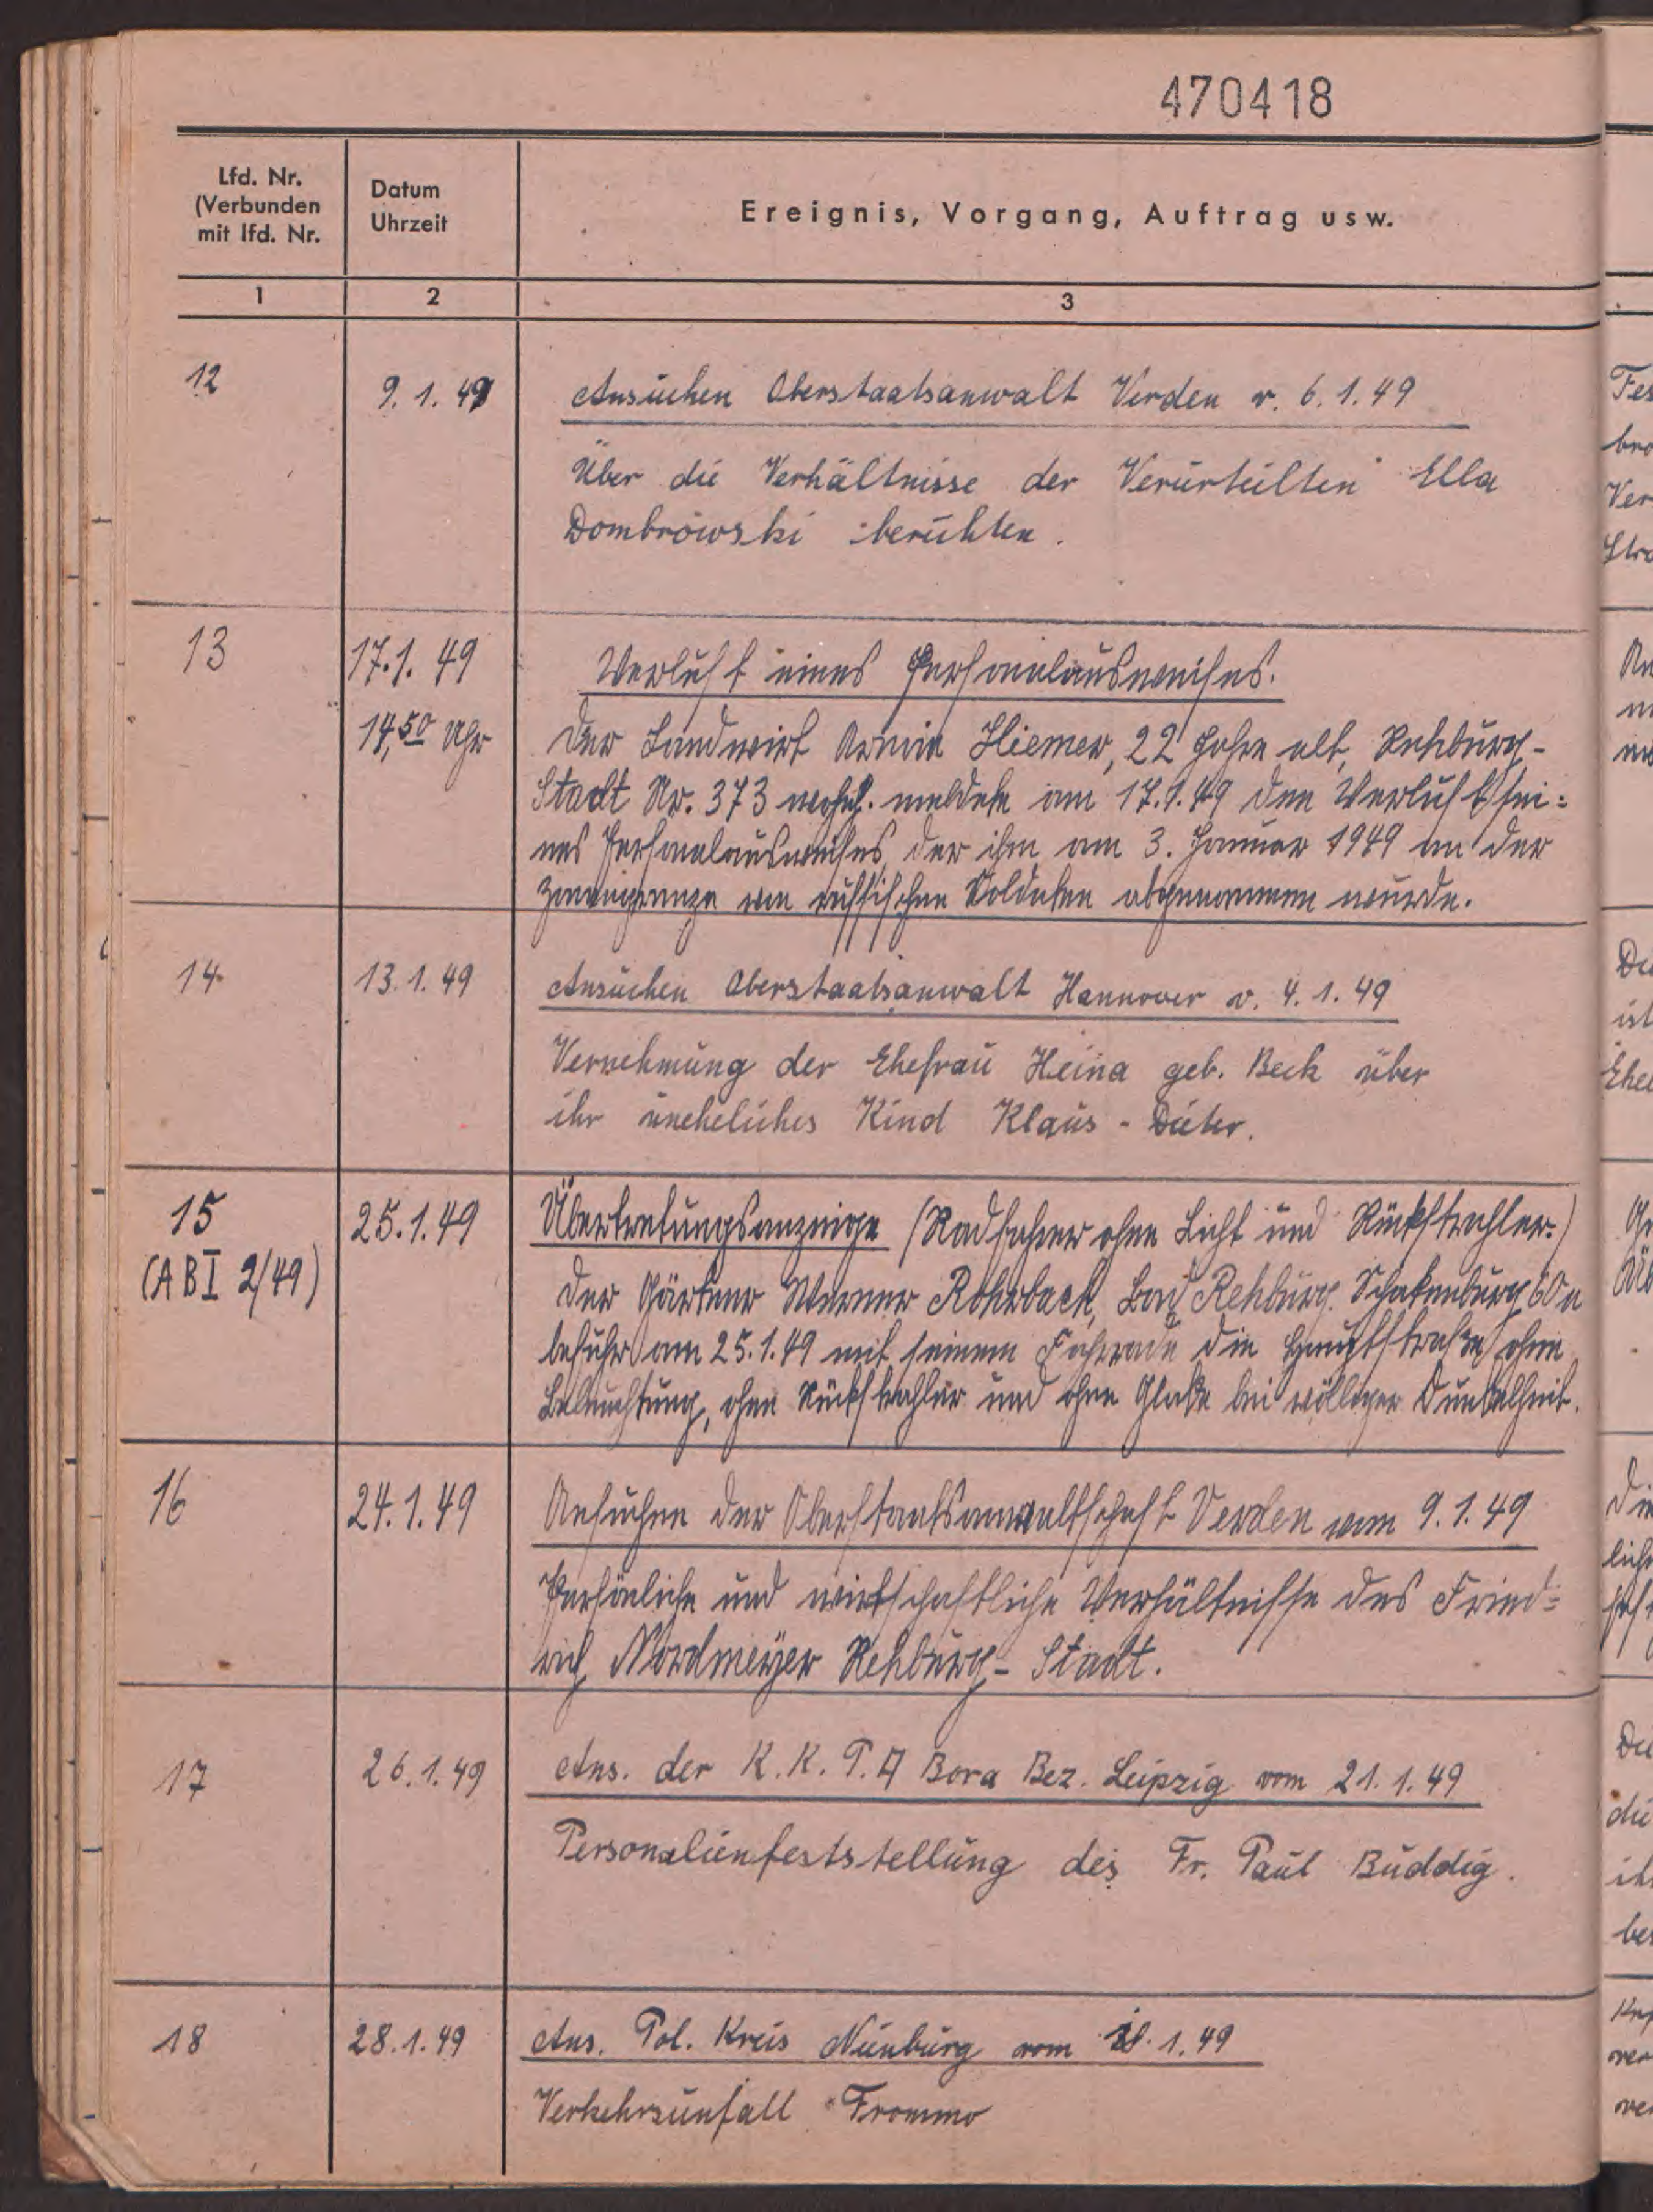 470418
Lfd. Nr.
(Verbunden
mit lfd. Nr.
Datum
Uhrzeit
Ereignis, Vorgang, Auftrag usw.
1
2
3
12
9. 1. 49
Ansuchen Oberstaatsanwalt Verden v. 6.1.49
Über die Verhältnisse der Verurteilten Ella
Dombrowski berichten.
13
17.1.49
14,50 Uhr
Verlust eines Personalausweises.
Der Landwirt Armin Hiemer, 22 Jahre alt, Rehburg-
Stadt Nr. 373 wohnh. meldete am 17.1.49 den Verlust sei=
nes Personalausweises, der ihm am 3. Januar 1949 an der
Zonengrenze von russischen Soldaten abgenommen wurde.
14
13.1.49
Ansuchen Oberstaatsanwalt Hannover v. 4.1.49
Vernehmung der Ehefrau Heina geb. Beck über
ihr uneheliches Kind Klaus - Dieter.
15
(A B I 2/49)
25.1.49
Übertretungsanzeige (Radfahrer ohne Licht und Rückstrahler.)
Der Gärtner Werner Rohrback, Bad Rehburg. Schakenburg 60a
befuhr am 25.1.49 mit seinem Fahrrade die Hauptstraße ohne
Beleuchtung, ohne Rückstrahler und ohne Glocke bei völliger Dunkelheit.
16
24.1.49
Ansuchen der Oberstaatsanwaltschaft Verden vom 9.1.49
Persönliche und wirtschaftliche Verhältnisse des Fried=
rich Nordmeyer Rehburg-Stadt.
17
26.1.49
Ans. der K.K.P.A Bora Bez. Leipzig vom 21.1.49
Personalienfeststellung des Fr. Paul Buddig.
18
28.1.49
Ans. Pol. Kreis Nienburg vom 1.49
Verkehrsunfall Frommo